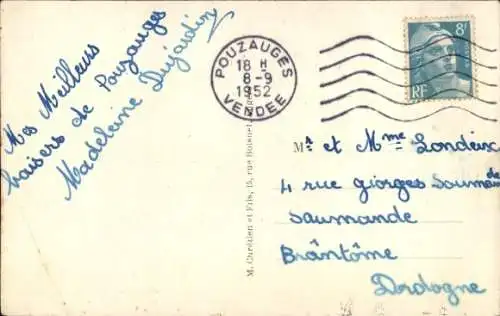 Mes Meilleurs
baisers de Pouzauges
Madeleine Dujardin
POUZAUGES
18 H
8-9
1952
VENDEE
8F
RF
M. Chrétien et Fils, 15, rue
Mr et Mme Londeix
4 rue giorges
saumande
Brântôme
Dordogne